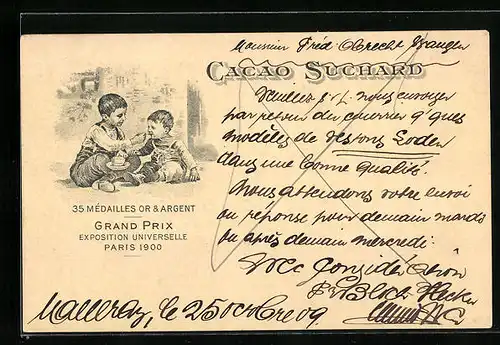 Monsieur Fréd. Obrecht Wangen
CACAO SUCHARD
Veuillez s.v.pl. nous envoyer
par retour du courrier qques
modèles de vestons Loden
dans une bonne qualité.
Nous attendons votre envoi
ou réponse pour demain mardi
ou après demain mercredi.
Avec considération
35 MÉDAILLES OR & ARGENT
GRAND PRIX
EXPOSITION UNIVERSELLE
PARIS 1900
Malleray, le 25 octobre 09.